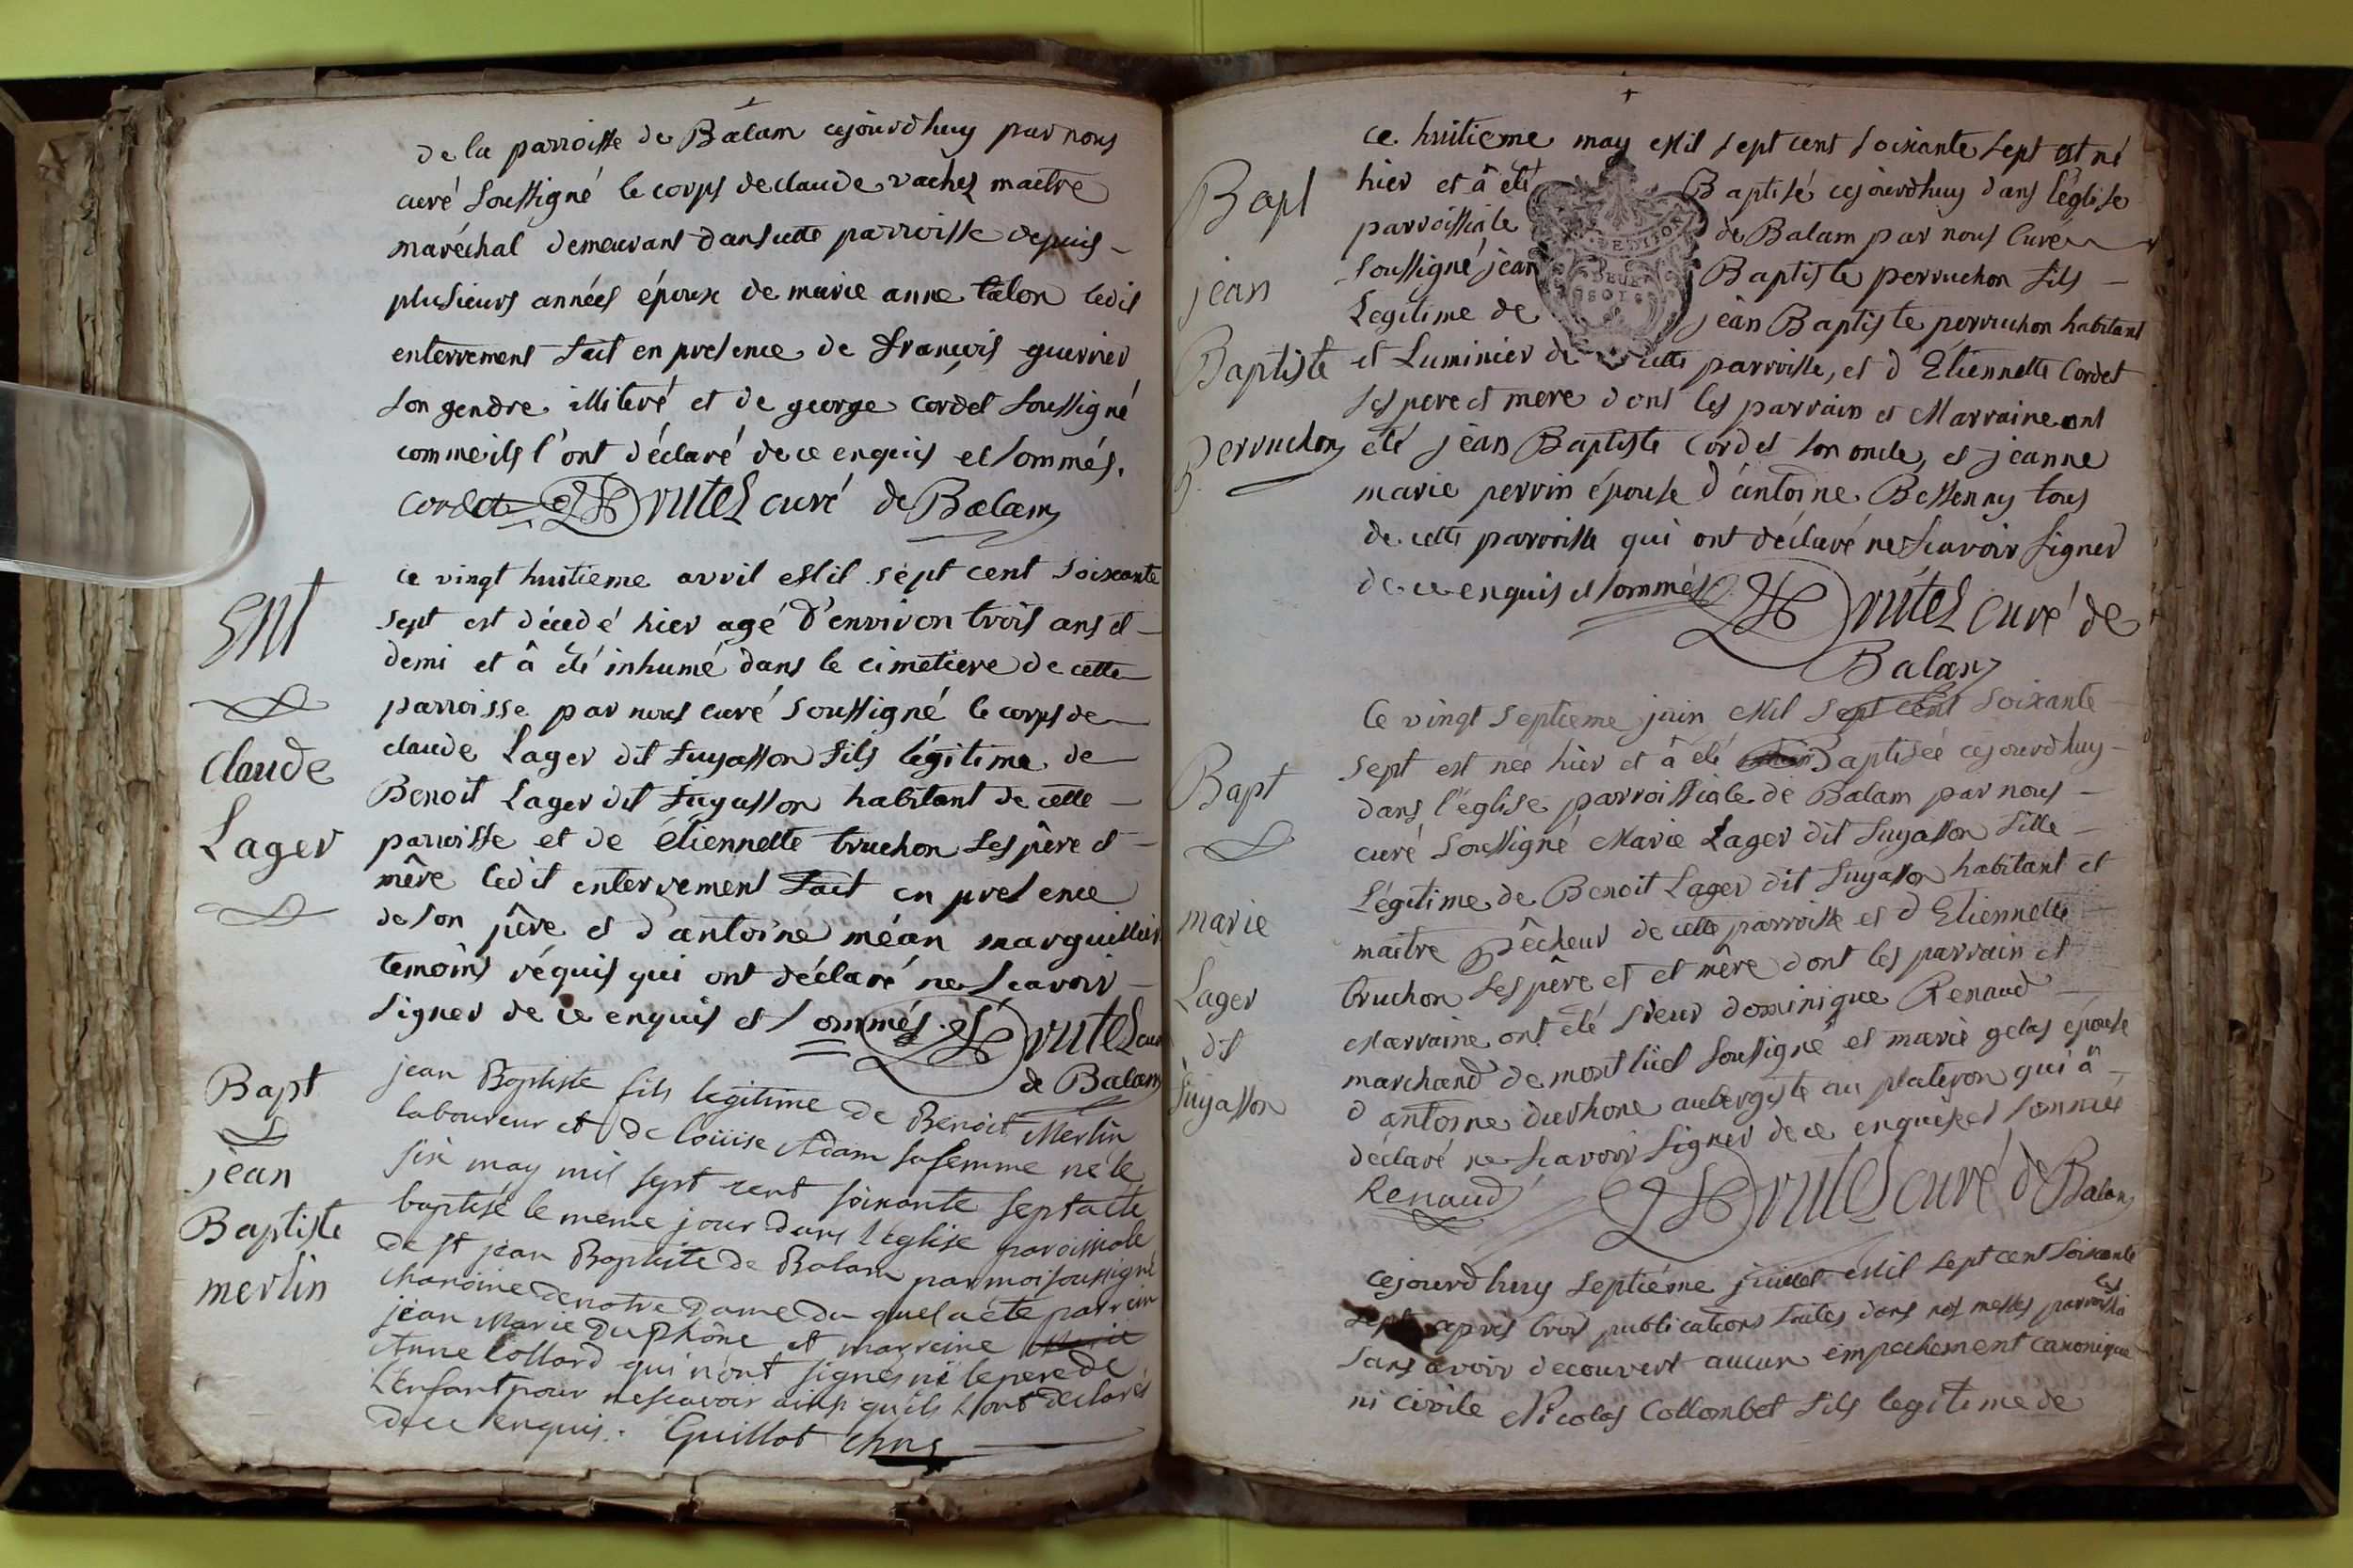 de la parroisse de Balam cejourdhuy par nous
curé soussigné le corps de claude vachez maitre
maréchal demeurant dans cette parroisse depuis
plusieurs années époux de marie anne talon ledit
enterrement fait en presence de françois guerrier
son gendre illiteré et de george cordet soussigné
comme ils l'ont déclaré de ce enquis et sommés.
cordet Drutel curé de Balam
Ent
claude
Lager
ce vingt huitieme avril Mil sept cent soixante
sept est décedé hier agé d'environ trois ans et
demi et â été inhumé dans le cimetiere de cette
parroisse par nous curé soussigné le corps de
claude Lager dit fuyasson fils légitime de
Benoit Lager dit fuyasson habitant de cette
parroisse et de étiennette truchon ses pêre et
mêre ledit enterrement fait en presence
de son pêre et d'antoine méan marguillier
temoins réquis qui ont déclaré ne scavoir
signer de ce enquis et sommés. Drutel curé
de Balam
Bapt
jean
Baptiste
merlin
jean Baptiste fils legitime de Benoit Merlin
laboureur et de loüise Adam sa femme né le
six may mil sept cent soixante sept a été
baptisé le meme jour dans l'église paroissiale
de st jean Baptiste de Balam par moi soussigné
chanoine de notre dame du quel a été parrein
jean Marie Duphône et marreine Marie
Anne Collard qui n'ont signés ni le pere de
l'enfant pour ne scavoir ainsi qu'ils l'ont declarés
de ce enquis. Guillot chne
Bapt
jean
Baptiste
perruchon
ce huitieme may Mil sept cent soixante sept est né
hier et â été Baptisé cejourdhuy dans l'église
parroissiale de Balam par nous Curé
soussigné jean Baptiste perruchon fils
Legitime de jean Baptiste perruchon habitant
et Luminier de cette parroisse, et d'Etiennette Cordet
ses pere et mere dont les parrain et Marraine ont
été jean Baptiste Cordet son oncle, et jeanne
marie perrin épouse d'antoine Bessenny tous
de cette parroisse qui ont déclaré ne scavoir signer
de ce enquis et sommés Drutel curé de
Balam
Bapt
marie
Lager
dit
fuyasson
Ce vingt septieme juin Mil sept cent soixante
sept est née hier et â été Baptisée cejourdhuy
dans l'église parroissiale de Balam par nous
curé soussigné Marie Lager dit fuyasson fille
Légitime de Benoit Lager dit fuyasson habitant et
maitre pêcheur de cette parroisse et d'Etiennette
truchon ses pêre et et mêre dont les parrain et
Marraine ont été sieur dominique Renaud
marchand de montlüel soussigné et marie gelas épouse
d'antoine durhone aubergiste au plateron qui â
déclaré ne scavoir signer de ce enquise et sommée
Renaud Drutel curé de Balam
Cejourdhuy septiéme juillet Mil sept cent soixante
sept apres trois publications faites dans nos messes parroissiales
sans avoir decouvert aucun empechement canonique
ni civile Nicolas Collombet fils legitime de